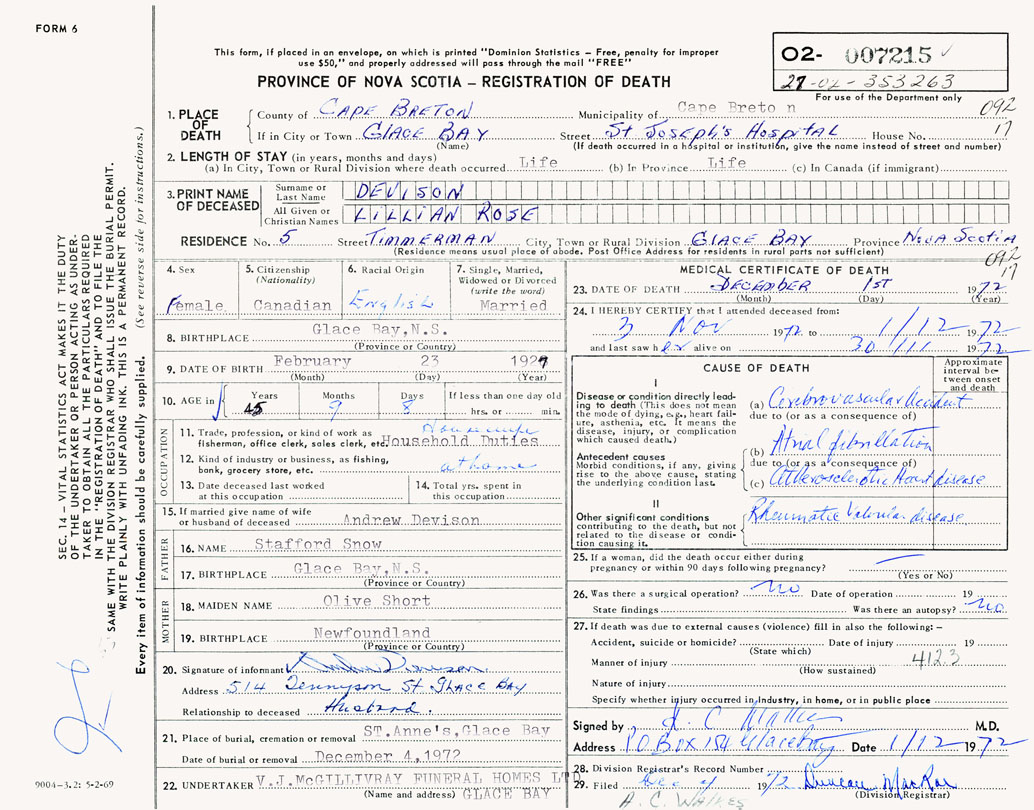 FORM 6
This form, if placed in an envelope, on which is printed "Dominion Statistics – Free, penalty for improper
use $50," and properly addressed will pass through the mail "FREE"
PROVINCE OF NOVA SCOTIA – REGISTRATION OF DEATH
02- 007215
27-02-353263
For use of the Department only
092
17
1. PLACE OF DEATH
County of CAPE BRETON Municipality of Cape Breto n
If in City or Town GLACE BAY Street St Joseph's Hospital House No.
(Name) (If death occurred in a hospital or institution, give the name instead of street and number)
2. LENGTH OF STAY (in years, months and days)
(a) In City, Town or Rural Division where death occurred Life (b) In Province Life (c) In Canada (if immigrant)
3. PRINT NAME OF DECEASED
Surname or Last Name DEVISON
All Given or Christian Names LILLIAN ROSE
RESIDENCE No. 5 Street TIMMERMAN City, Town or Rural Division GLACE BAY Province NOVA SCOTIA
(Residence means usual place of abode. Post Office Address for residents in rural parts not sufficient)
092
17
4. Sex Female
5. Citizenship (Nationality) Canadian
6. Racial Origin English
7. Single, Married, Widowed or Divorced (write the word) Married
8. BIRTHPLACE Glace Bay, N.S.
(Province or Country)
9. DATE OF BIRTH February 23 1927
(Month) (Day) (Year)
10. AGE in Years 45 Months 9 Days 8 If less than one day old hrs. or min.
OCCUPATION
11. Trade, profession, or kind of work as fisherman, office clerk, sales clerk, etc. Housewife Household Duties
12. Kind of industry or business, as fishing, bank, grocery store, etc. at home
13. Date deceased last worked at this occupation
14. Total yrs. spent in this occupation
15. If married give name of wife or husband of deceased Andrew Devison
FATHER
16. NAME Stafford Snow
17. BIRTHPLACE Glace Bay, N.S.
(Province or Country)
MOTHER
18. MAIDEN NAME Olive Short
19. BIRTHPLACE Newfoundland
(Province or Country)
20. Signature of informant Devison
Address 514 Tennyson St GLACE BAY
Relationship to deceased Husband.
21. Place of burial, cremation or removal ST.Anne's, Glace Bay
Date of burial or removal December 4, 1972
22. UNDERTAKER V.J.McGILLIVRAY FUNERAL HOMES LTD
(Name and address) GLACE BAY
MEDICAL CERTIFICATE OF DEATH
23. DATE OF DEATH DECEMBER 1ST 1972
(Month) (Day) (Year)
24. I HEREBY CERTIFY that I attended deceased from:
3 Nov 1972 to 1/12 1972
and last saw her alive on 30/11 1972
CAUSE OF DEATH
Approximate interval between onset and death
I
Disease or condition directly leading to death (This does not mean the mode of dying, e.g., heart failure, asthenia, etc. It means the disease, injury, or complication which caused death.)
(a) Cerebrovascular Accident
due to (or as a consequence of)
Antecedent causes
Morbid condition, if any, giving rise to the above cause, stating the underlying condition last.
(b) Atrial fibrillation
due to (or as a consequence of)
(c) Atherosclerotic Heart disease
II
Other significant conditions contributing to the death, but not related to the disease or condition causing it.
Rheumatic Valvular disease
25. If a woman, did the death occur either during pregnancy or within 90 days following pregnancy?
(Yes or No)
26. Was there a surgical operation? no Date of operation 19
State findings Was there an autopsy? no
27. If death was due to external causes (violence) fill in also the following: –
Accident, suicide or homicide? Date of injury 19
(State which)
Manner of injury 412.3
(How sustained)
Nature of injury
Specify whether injury occurred in Industry, in home, or in public place
Signed by M.D.
Address P.O. Box 154 Glace Bay Date 1/12 1972
28. Division Registrar's Record Number
29. Filed Dec 1972 Duncan MacRae
(Division Registrar)
A. C. WALKES
SEC. 14 – VITAL STATISTICS ACT MAKES IT THE DUTY
OF THE UNDERTAKER OR PERSON ACTING AS UNDER-
TAKER TO OBTAIN ALL THE PARTICULARS REQUIRED
IN THE "REGISTRATION OF DEATH" AND TO FILE THE
SAME WITH THE DIVISION REGISTRAR WHO SHALL ISSUE THE BURIAL PERMIT.
WRITE PLAINLY WITH UNFADING INK. THIS IS A PERMANENT RECORD.
Every item of information should be carefully supplied. (See reverse side for instructions.)
9004-3.2: 5-2-69